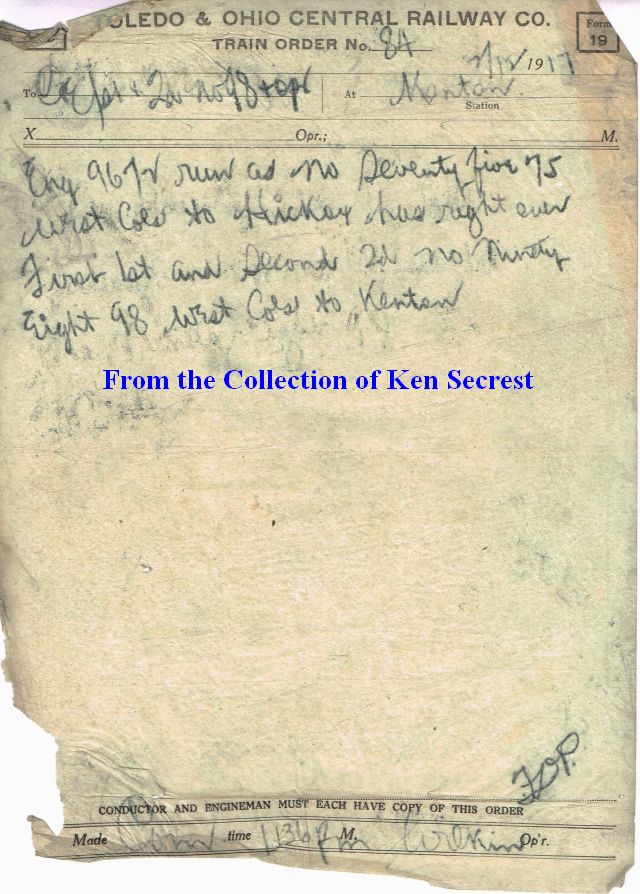 TOLEDO & OHIO CENTRAL RAILWAY CO.
Form 19
TRAIN ORDER No. 84
2/12 1917
To C&E 1st & 2d no 98 & opr At Kenton
Station
X Opr.; M.
Eng 96 run as no Seventy five 75
West Cols to Hickox has right over
First 1st and Second 2d no Ninety
Eight 98 West Cols to Kenton
From the Collection of Ken Secrest
CONDUCTOR AND ENGINEMAN MUST EACH HAVE COPY OF THIS ORDER
Made Com time 136 pm M. Op'r.